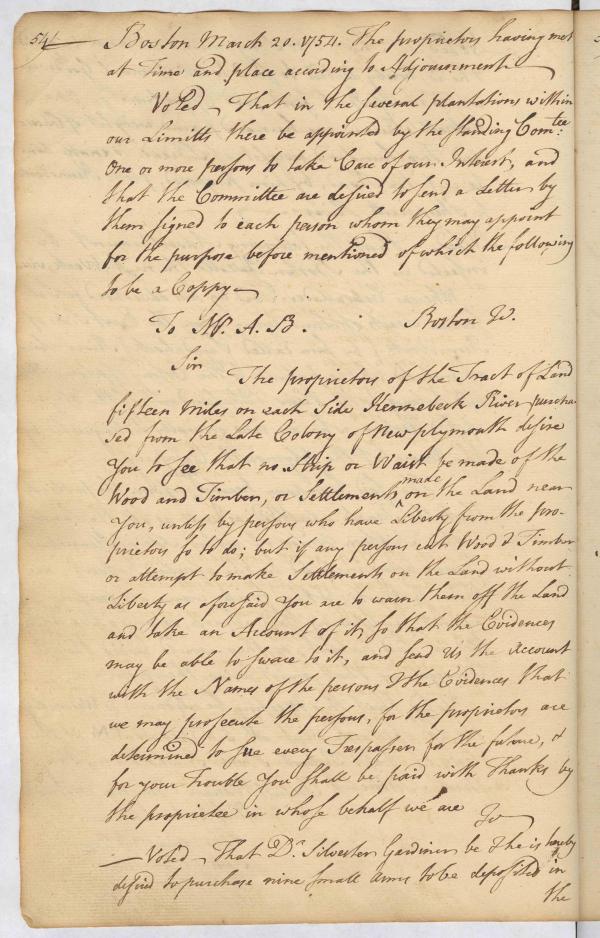 54
Boston March 20. 1754. The proprietors having met
at Time and place according to Adjournment
Voted, That in the several plantations within
our Limitts there be appointed by the standing Comtee:
One or more persons to take Care of our Interest, and
that the Committee are desired to send a Letter by
them signed to each person whom they may appoint
for the purpose before mentioned of which the following
to be a Coppy
To Mr. A. B. Boston &c.
Sir
The proprietors of the Tract of Land
fifteen miles on each Side Kennebeck River purcha
sed from the Late Colony of Newplymouth desire
You to see that no Strip or Waist be made of the
Wood and Timber, or Settlements made on the Land near
You, unless by persons who have Liberty from the pro-
prietors so to do; but if any persons cut Wood & Timber
or attempt to make Settlements on the Land without
Liberty as aforesaid You are to warn them off the Land
and take an Account of it, so that the Evidences
may be able to sware to it, and send Us the Account
with the Names of the persons & the Evidences that
we may prosecute the persons, for the proprietors are
determined to sue every Trespasser for the future, &
for your Trouble You shall be paid with Thanks by
the proprietee in whose behalf we are &c
Voted, That Dr. Silvester Gardiner be & he is hereby
desired to purchase nine small arms to be deposited in
the